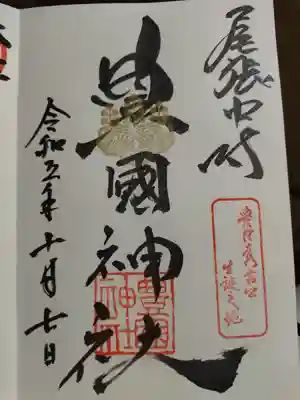 尾張中村
豊臣秀吉公
生誕之地
豊國神社
令和五年十月七日